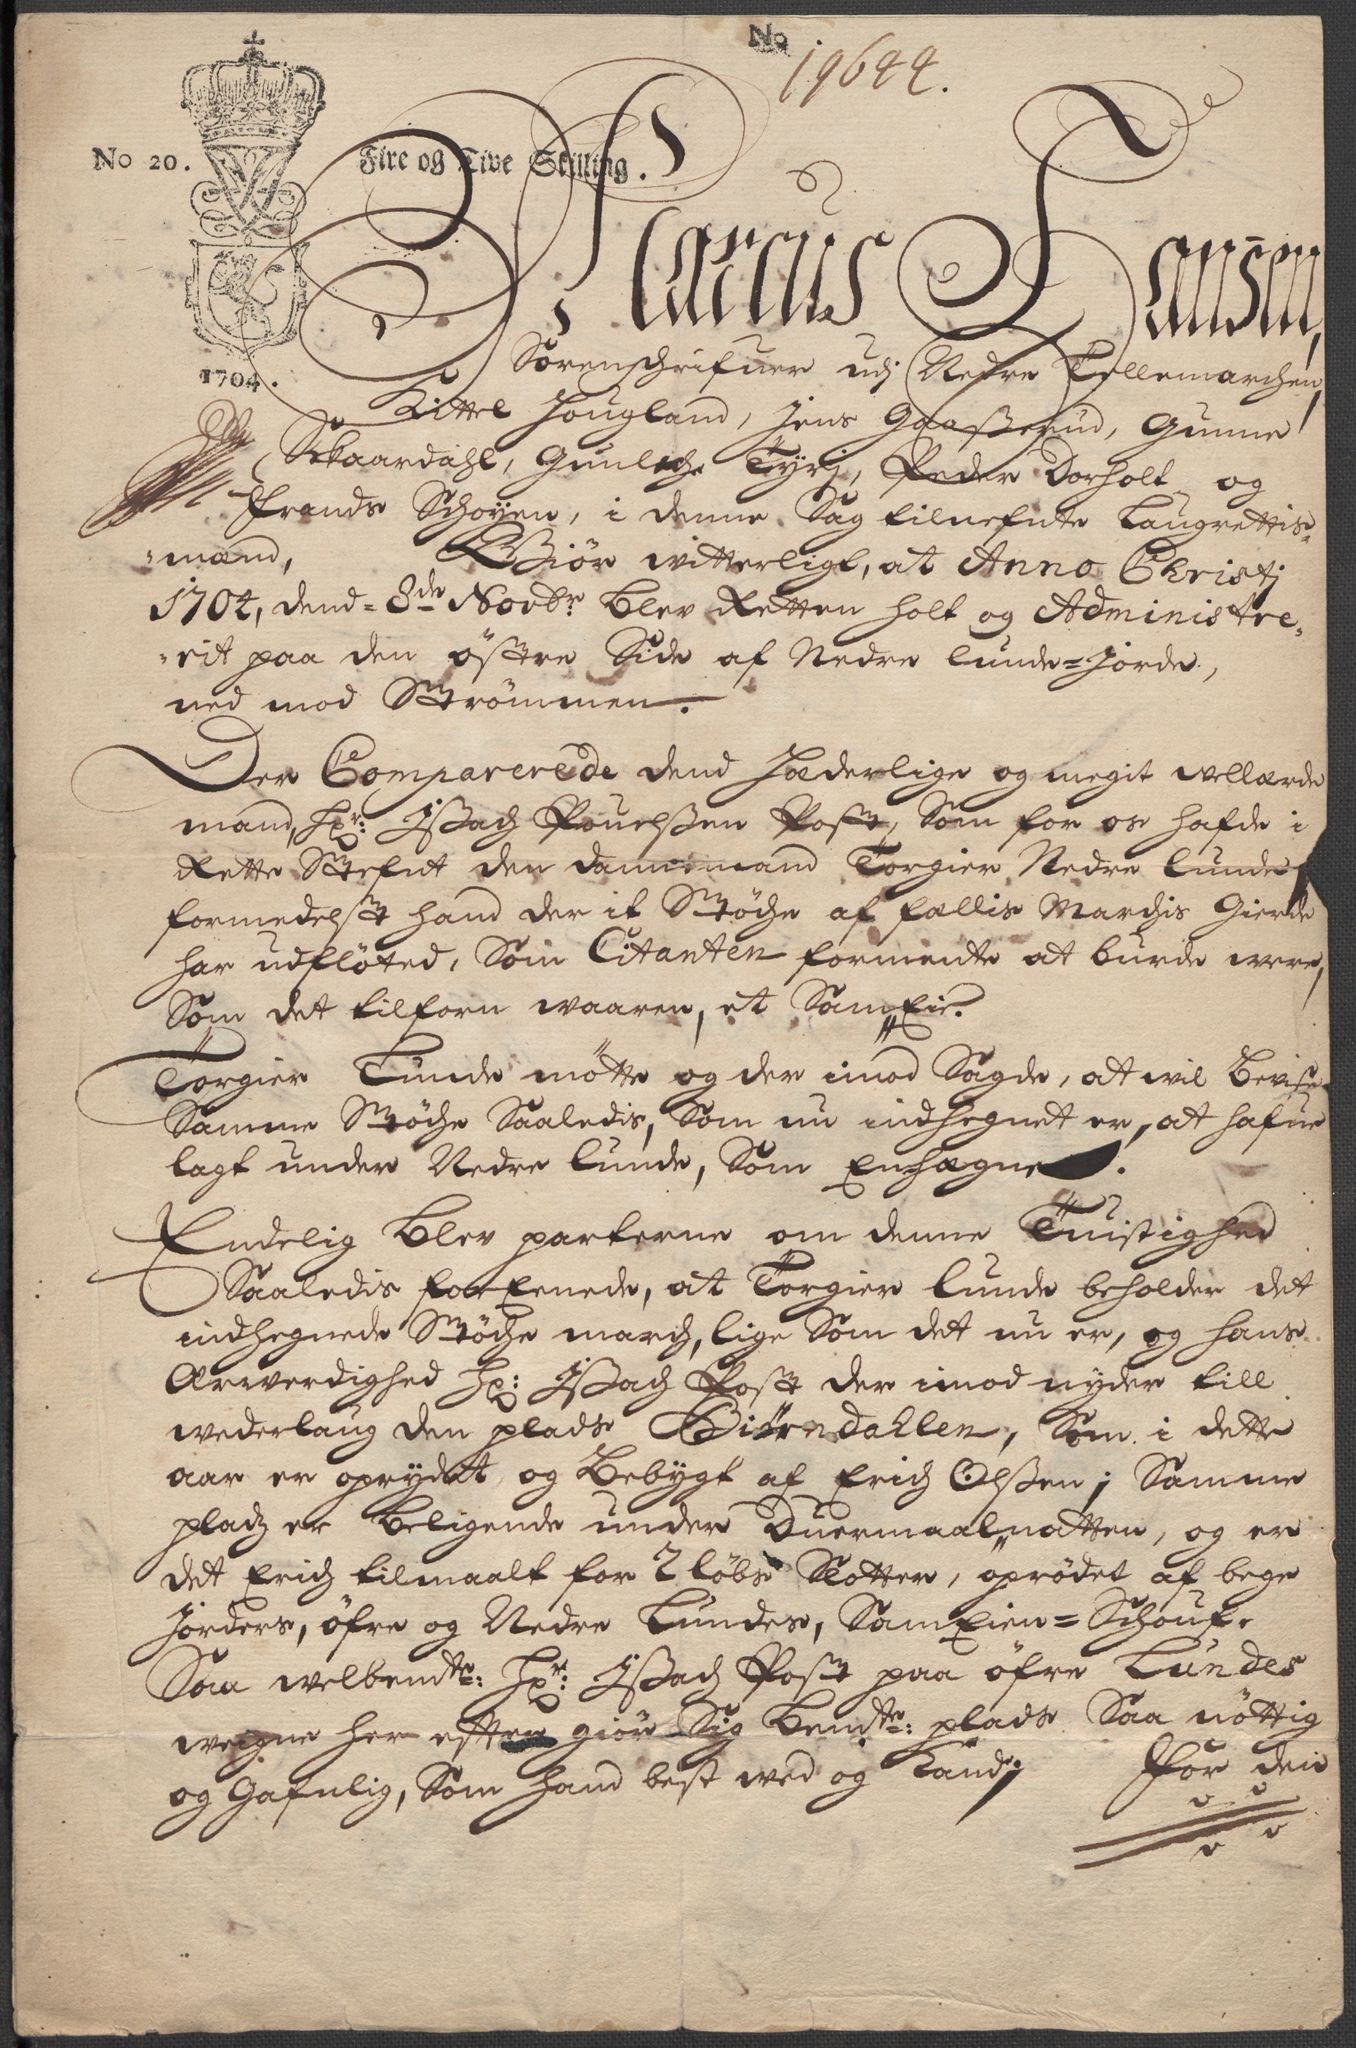 No
19644.
No 20.
Fire og Tive Skilling.
Marcus Hansen,
1704.
Sorenschrifuer udj Nedre Tellemarchen,
Kittel Hougland, Jens Gaasserud, Gunne
Skaardahl, Gunliche Tyrj, Peder Dorholt og
Frands Schoyen, i denne Sag tilnefnte Laugrettis-
mænd, Giör witterligt, at Anno Christj
1704, dend 8de Novbr. blev Retten holt og Administre-
rit paa den östre Side af Nedre Lunde-Jorde,
ned mod Strömmen.
Der Comparerede dend Hæderlige og megit wellærde
mand, Hr: Issach Pouelssen Post, Som for os hafde i
Rette Stefnt den dannemand Torgier Nedre Lunde,
formedelst hand der it Stöche af fællis Marchis Gierde
har udflöted, Som Citanten formente at burde were,
Som det tilforn waaren, et SamEie.
Torgier Lunde mötte og der imod Sagde, at wil bevise
Samme Stöche Saaledis, Som nu indhegnet er, at hafue
lagt under Nedre Lunde, Som Enhægne.
Endelig blev parterne om denne Tuistighed
Saaledis forEenede, at Torgier Lunde beholder det
indhegnede Stöche march, lige Som det nu er, og hans
Ærwerdighed Hr: Issach Post der imod nyder till
wederlaug den plads Biörndahlen, Som i dette
aar er oprydet og Bebygt af Erich Olssen; Samme
pladz er beligende under Duermaalnatten, og er
det Erich tilmaalt for 2 löbs Slotter, oprödet af bege
Jorders, öfre og Nedre Lundes, SamEien-Schouf.
Saa welbemte: Hr: Issach Post paa öfre Lundes
weigne her efter giör Sig bemte: plads Saa nöttig
og Gafnlig, Som hand best wed og Kand;
For den